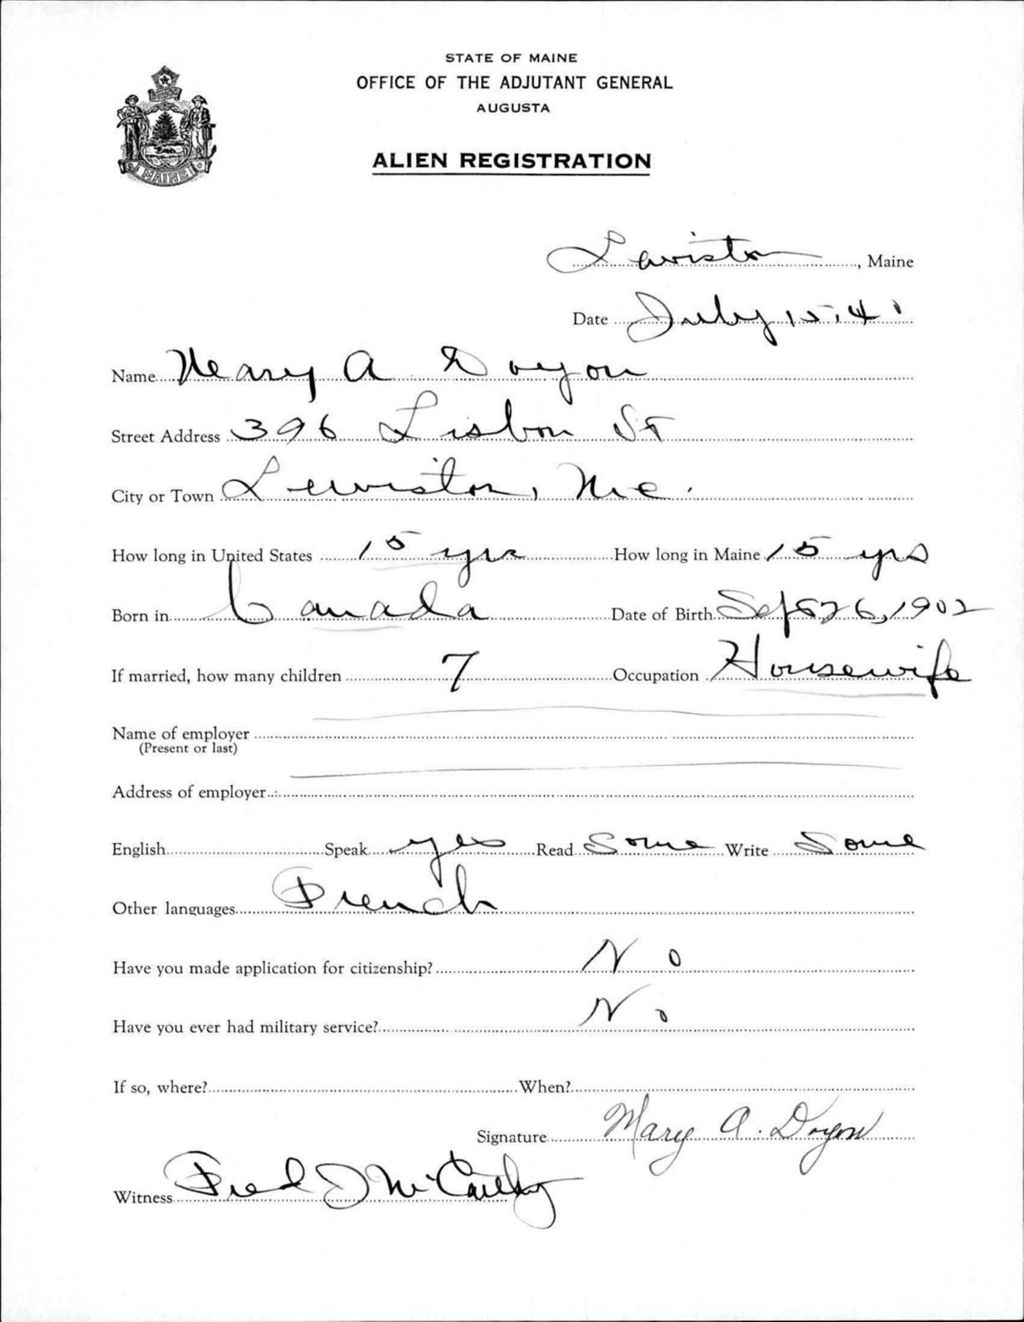 STATE OF MAINE
OFFICE OF THE ADJUTANT GENERAL
AUGUSTA
ALIEN REGISTRATION
MAINE
Lewiston, Maine
Date July 15, 41
Name Mary A Doyon
Street Address 396 Lisbon St
City or Town Lewiston, Me.
How long in United States 15 yrs How long in Maine 15 yrs
Born in Canada Date of Birth Sept 26, 1902
If married, how many children 7 Occupation Housewife
Name of employer
(Present or last)
Address of employer
English Speak yes Read Some Write Some
Other languages French
Have you made application for citizenship? No
Have you ever had military service? No
If so, where? When?
Signature Mary A. Doyon
Witness Fred J McCarthy